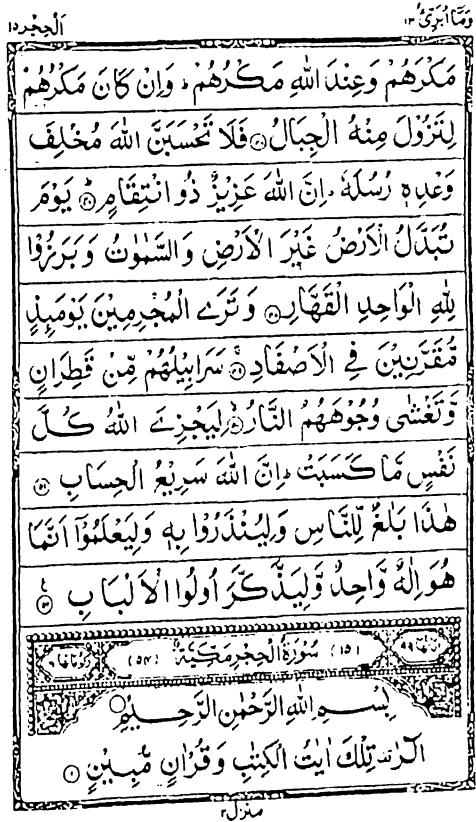 وَمَآ اُبَرِّئُ ١٣
اَلْحِجْر ١٥
مَكْرَهُمْ وَعِنْدَ اللّٰهِ مَكْرُهُمْ ؕ وَاِنْ كَانَ مَكْرُهُمْ
لِتَزُوْلَ مِنْهُ الْجِبَالُ ﴿۴۶﴾ فَلَا تَحْسَبَنَّ اللّٰهَ مُخْلِفَ
وَعْدِهٖ رُسُلَهٗ ؕ اِنَّ اللّٰهَ عَزِيْزٌ ذُو انْتِقَامٍ ﴿۴۷﴾ يَوْمَ
تُبَدَّلُ الْاَرْضُ غَيْرَ الْاَرْضِ وَالسَّمٰوٰتُ وَبَرَزُوْا
لِلّٰهِ الْوَاحِدِ الْقَهَّارِ ﴿۴۸﴾ وَتَرَى الْمُجْرِمِيْنَ يَوْمَئِذٍ
مُّقَرَّنِيْنَ فِى الْاَصْفَادِ ﴿۴۹﴾ سَرَابِيْلُهُمْ مِّنْ قَطِرَانٍ
وَّتَغْشٰى وُجُوْهَهُمُ النَّارُ ﴿۵۰﴾ لِيَجْزِىَ اللّٰهُ كُلَّ
نَفْسٍ مَّا كَسَبَتْ ؕ اِنَّ اللّٰهَ سَرِيْعُ الْحِسَابِ ﴿۵۱﴾
هٰذَا بَلٰغٌ لِّلنَّاسِ وَلِيُنْذَرُوْا بِهٖ وَلِيَعْلَمُوْٓا اَنَّمَا
هُوَ اِلٰهٌ وَّاحِدٌ وَّلِيَذَّكَّرَ اُولُوا الْاَلْبَابِ ﴿۵۲﴾
اٰيَاتُهَا ٩٩ (١٥) سُوْرَةُ الْحِجْرِ مَكِّيَّةٌ (٥٤) رُكُوْعَاتُهَا ٦
بِسْمِ اللّٰهِ الرَّحْمٰنِ الرَّحِيْمِ
الٓرٰ ۟ تِلْكَ اٰيٰتُ الْكِتٰبِ وَقُرْاٰنٍ مُّبِيْنٍ ﴿۱﴾
منزل ٣